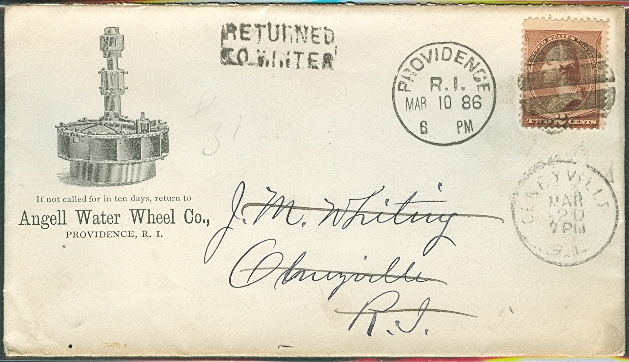 RETURNED
TO WRITER
PROVIDENCE
R.I.
MAR 10 86
6 PM
UNITED STATES POSTAGE
TWO 2 CENTS
# 31
If not called for in ten days, return to
Angell Water Wheel Co.,
PROVIDENCE, R. I.
J. M. Whiting
Olneyville
R.I.
OLNEYVILLE
MAR
20
7PM
R.I.